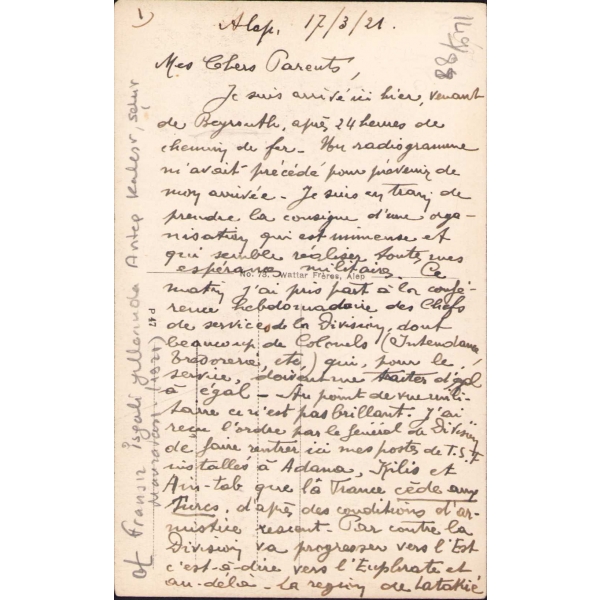 1)
Alep, 17/3/21.
1641/88
Mes Chers Parents,
Je suis arrivé ici hier, venant
de Beyrouth, après 24 heures de
chemin de fer. Un radiogramme
m'avait précédé pour prévenir de
mon arrivée. Je suis en train de
prendre la consigne d'une orga-
nisation qui est immense et
qui semble réaliser toutes mes
espérances militaires. Ce
No. 78. Wattar Frères, Alep
matin j'ai pris part à la confé-
rence hebdomadaire des Chefs
de services de la Division, dont
beaucoup de Colonels (Intendance
Trésorerie, etc.) qui, pour le
service, doivent me traiter d'égal
à égal. Au point de vue mili-
taire ce n'est pas brillant. J'ai
reçu l'ordre par le Général de Division
de faire rentrer ici mes postes de T.S.F
installés à Adana, Kilis et
Aïn-tab que la France cède aux
Turcs, d'après des conditions d'ar-
mistice récent. Par contre la
Division va progresser vers l'Est
c'est-à-dire vers l'Euphrate et
au-delà. La région de Latakié
Fransız işgali yıllarında Antep Kalesi, şehir
(1921)